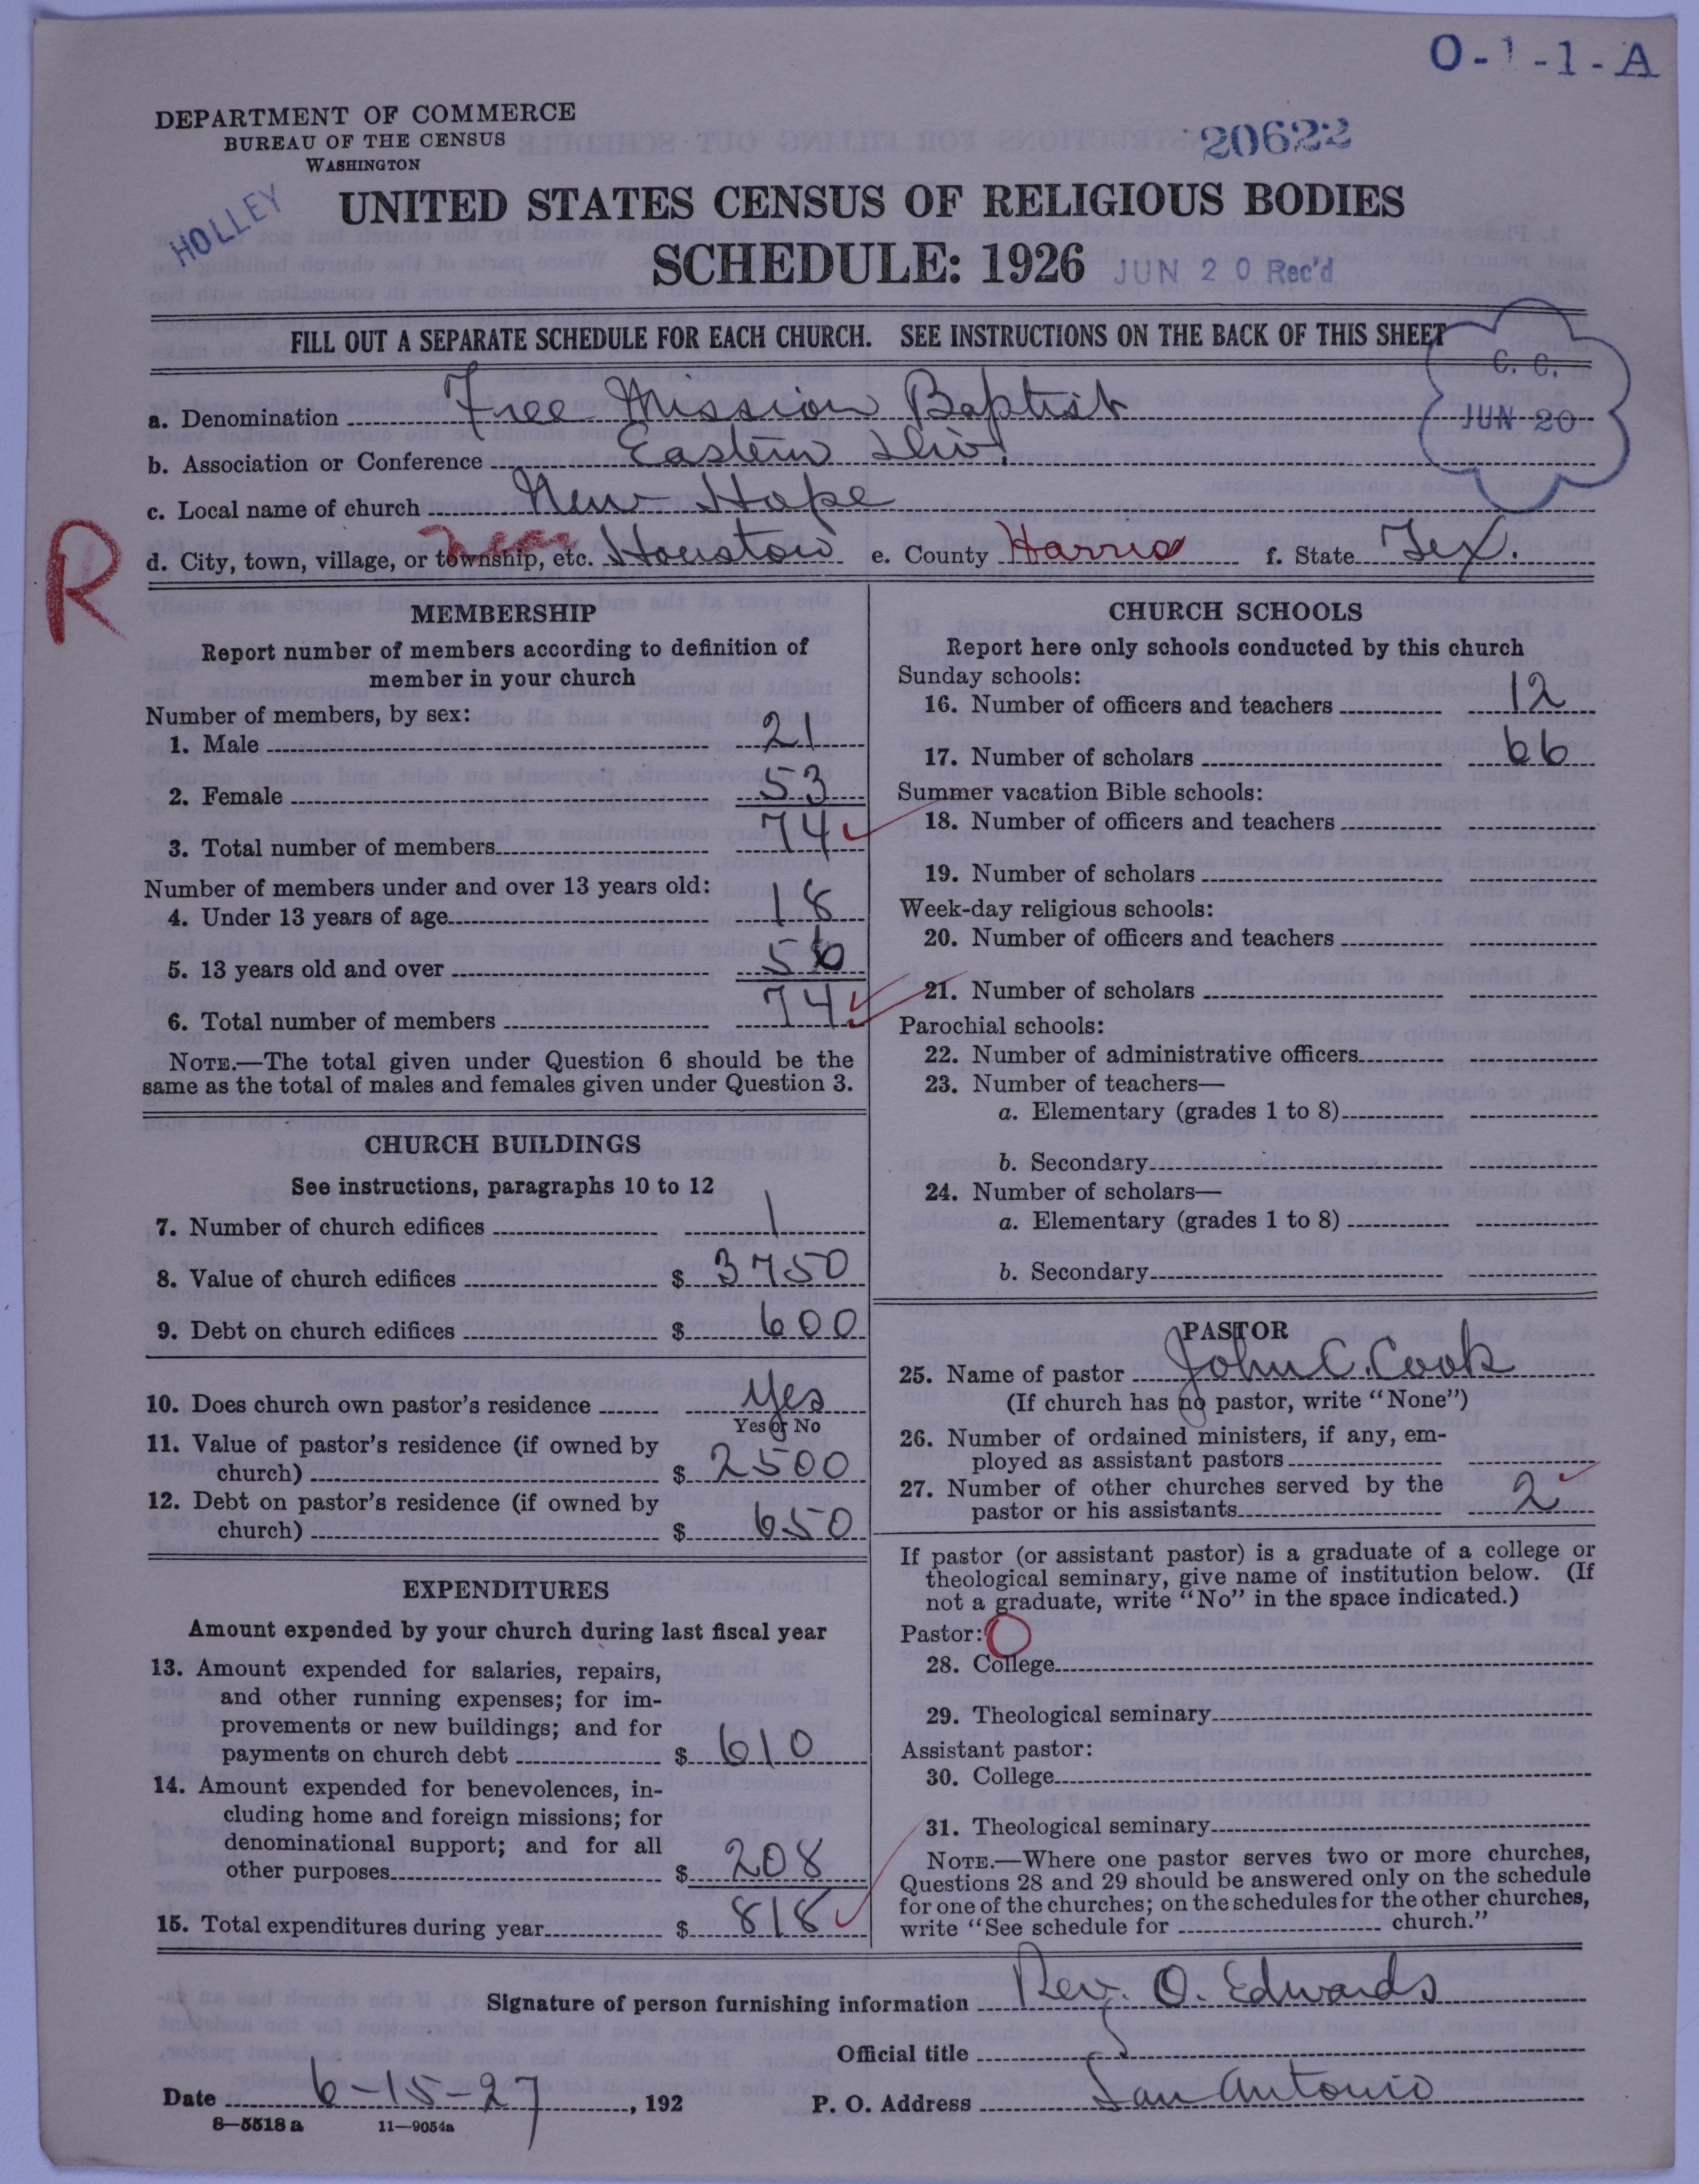 O-1-1-A
DEPARTMENT OF COMMERCE
BUREAU OF THE CENSUS
WASHINGTON
20622
HOLLEY
UNITED STATES CENSUS OF RELIGIOUS BODIES
SCHEDULE: 1926 JUN 20 Rec'd
FILL OUT A SEPARATE SCHEDULE FOR EACH CHURCH. SEE INSTRUCTIONS ON THE BACK OF THIS SHEET
C. C.
JUN 20
a. Denomination Free Mission Baptist
b. Association or Conference Eastern Div.
c. Local name of church New Hope
R
d. City, town, village, or township, etc. near Houston e. County Harris f. State Tex.
MEMBERSHIP
Report number of members according to definition of
member in your church
Number of members, by sex:
1. Male 21
2. Female 53
3. Total number of members 74
Number of members under and over 13 years old:
4. Under 13 years of age 18
5. 13 years old and over 56
6. Total number of members 74
NOTE.—The total given under Question 6 should be the
same as the total of males and females given under Question 3.
CHURCH BUILDINGS
See instructions, paragraphs 10 to 12
7. Number of church edifices 1
8. Value of church edifices $ 3750
9. Debt on church edifices $ 600
10. Does church own pastor's residence yes
Yes or No
11. Value of pastor's residence (if owned by
church) $ 2500
12. Debt on pastor's residence (if owned by
church) $ 650
EXPENDITURES
Amount expended by your church during last fiscal year
13. Amount expended for salaries, repairs,
and other running expenses; for im-
provements or new buildings; and for
payments on church debt $ 610
14. Amount expended for benevolences, in-
cluding home and foreign missions; for
denominational support; and for all
other purposes $ 208
15. Total expenditures during year $ 818
CHURCH SCHOOLS
Report here only schools conducted by this church
Sunday schools:
16. Number of officers and teachers 12
17. Number of scholars 66
Summer vacation Bible schools:
18. Number of officers and teachers
19. Number of scholars
Week-day religious schools:
20. Number of officers and teachers
21. Number of scholars
Parochial schools:
22. Number of administrative officers
23. Number of teachers—
a. Elementary (grades 1 to 8)
b. Secondary
24. Number of scholars—
a. Elementary (grades 1 to 8)
b. Secondary
PASTOR
25. Name of pastor John C. Cook
(If church has no pastor, write "None")
26. Number of ordained ministers, if any, em-
ployed as assistant pastors
27. Number of other churches served by the
pastor or his assistants 2
If pastor (or assistant pastor) is a graduate of a college or
theological seminary, give name of institution below. (If
not a graduate, write "No" in the space indicated.)
Pastor: O
28. College
29. Theological seminary
Assistant pastor:
30. College
31. Theological seminary
NOTE.—Where one pastor serves two or more churches,
Questions 28 and 29 should be answered only on the schedule
for one of the churches; on the schedules for the other churches,
write "See schedule for church."
Signature of person furnishing information Rev. O. Edwards
Official title
Date 6-15-27, 192 P. O. Address San Antonio
8—5518 a 11—9054a